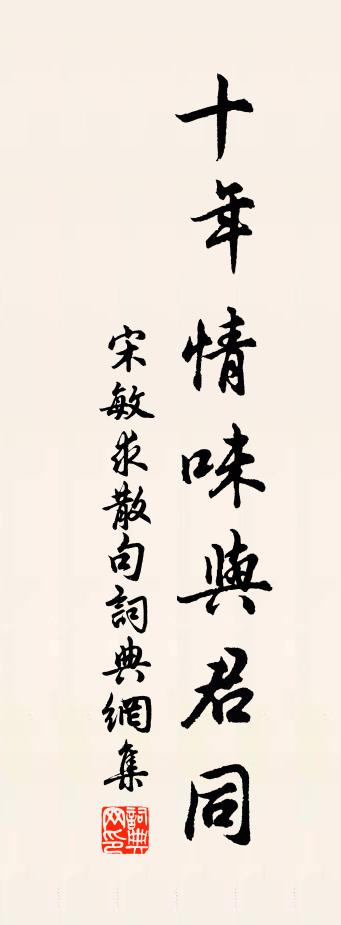 十年情味與君同
宋敏求散句詞典網集
詞典网印